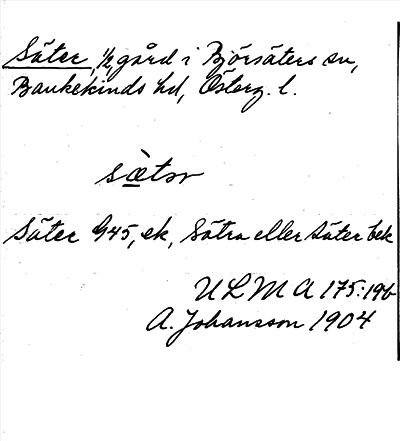 Säter, 1/2 gård i Björsäters sn,
Bankekinds hd, Österg. l.
sæ̀tər
Säter G45, ek, Sätra eller Säter bek
ULMA 175:19b
A. Johansson 1904